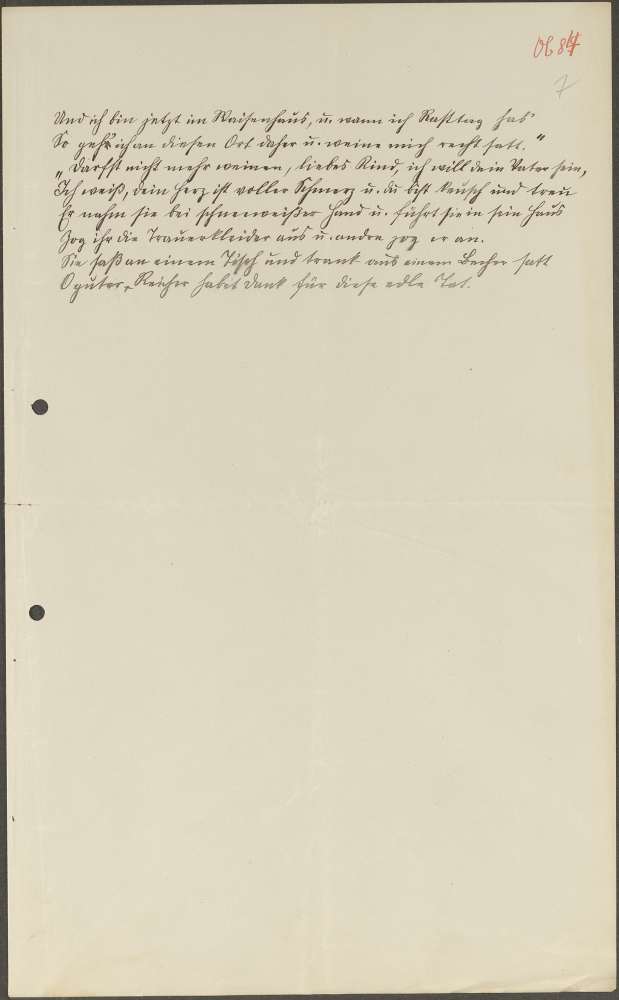 Ob 84
7
Und ich bin jetzt im Waisenhaus, u. wann ich Rasttag hab'
So geh' ich an diesen Ort daher u. weine mich recht satt."
„Darfst nicht mehr weinen, liebes Kind, ich will dein Vater sein,
Ich weiß, dein Herz ist voller Schmerz u. du bist keusch und treu
Er nahm sie bei schneeweißer Hand u. führt sie in sein Haus
Zog ihr die Trauerkleider aus u. andre zog er an.
Sie saß an einem Tisch und trank aus einem Becher satt
O guter, Reicher habet Dank für diese edle Tat.